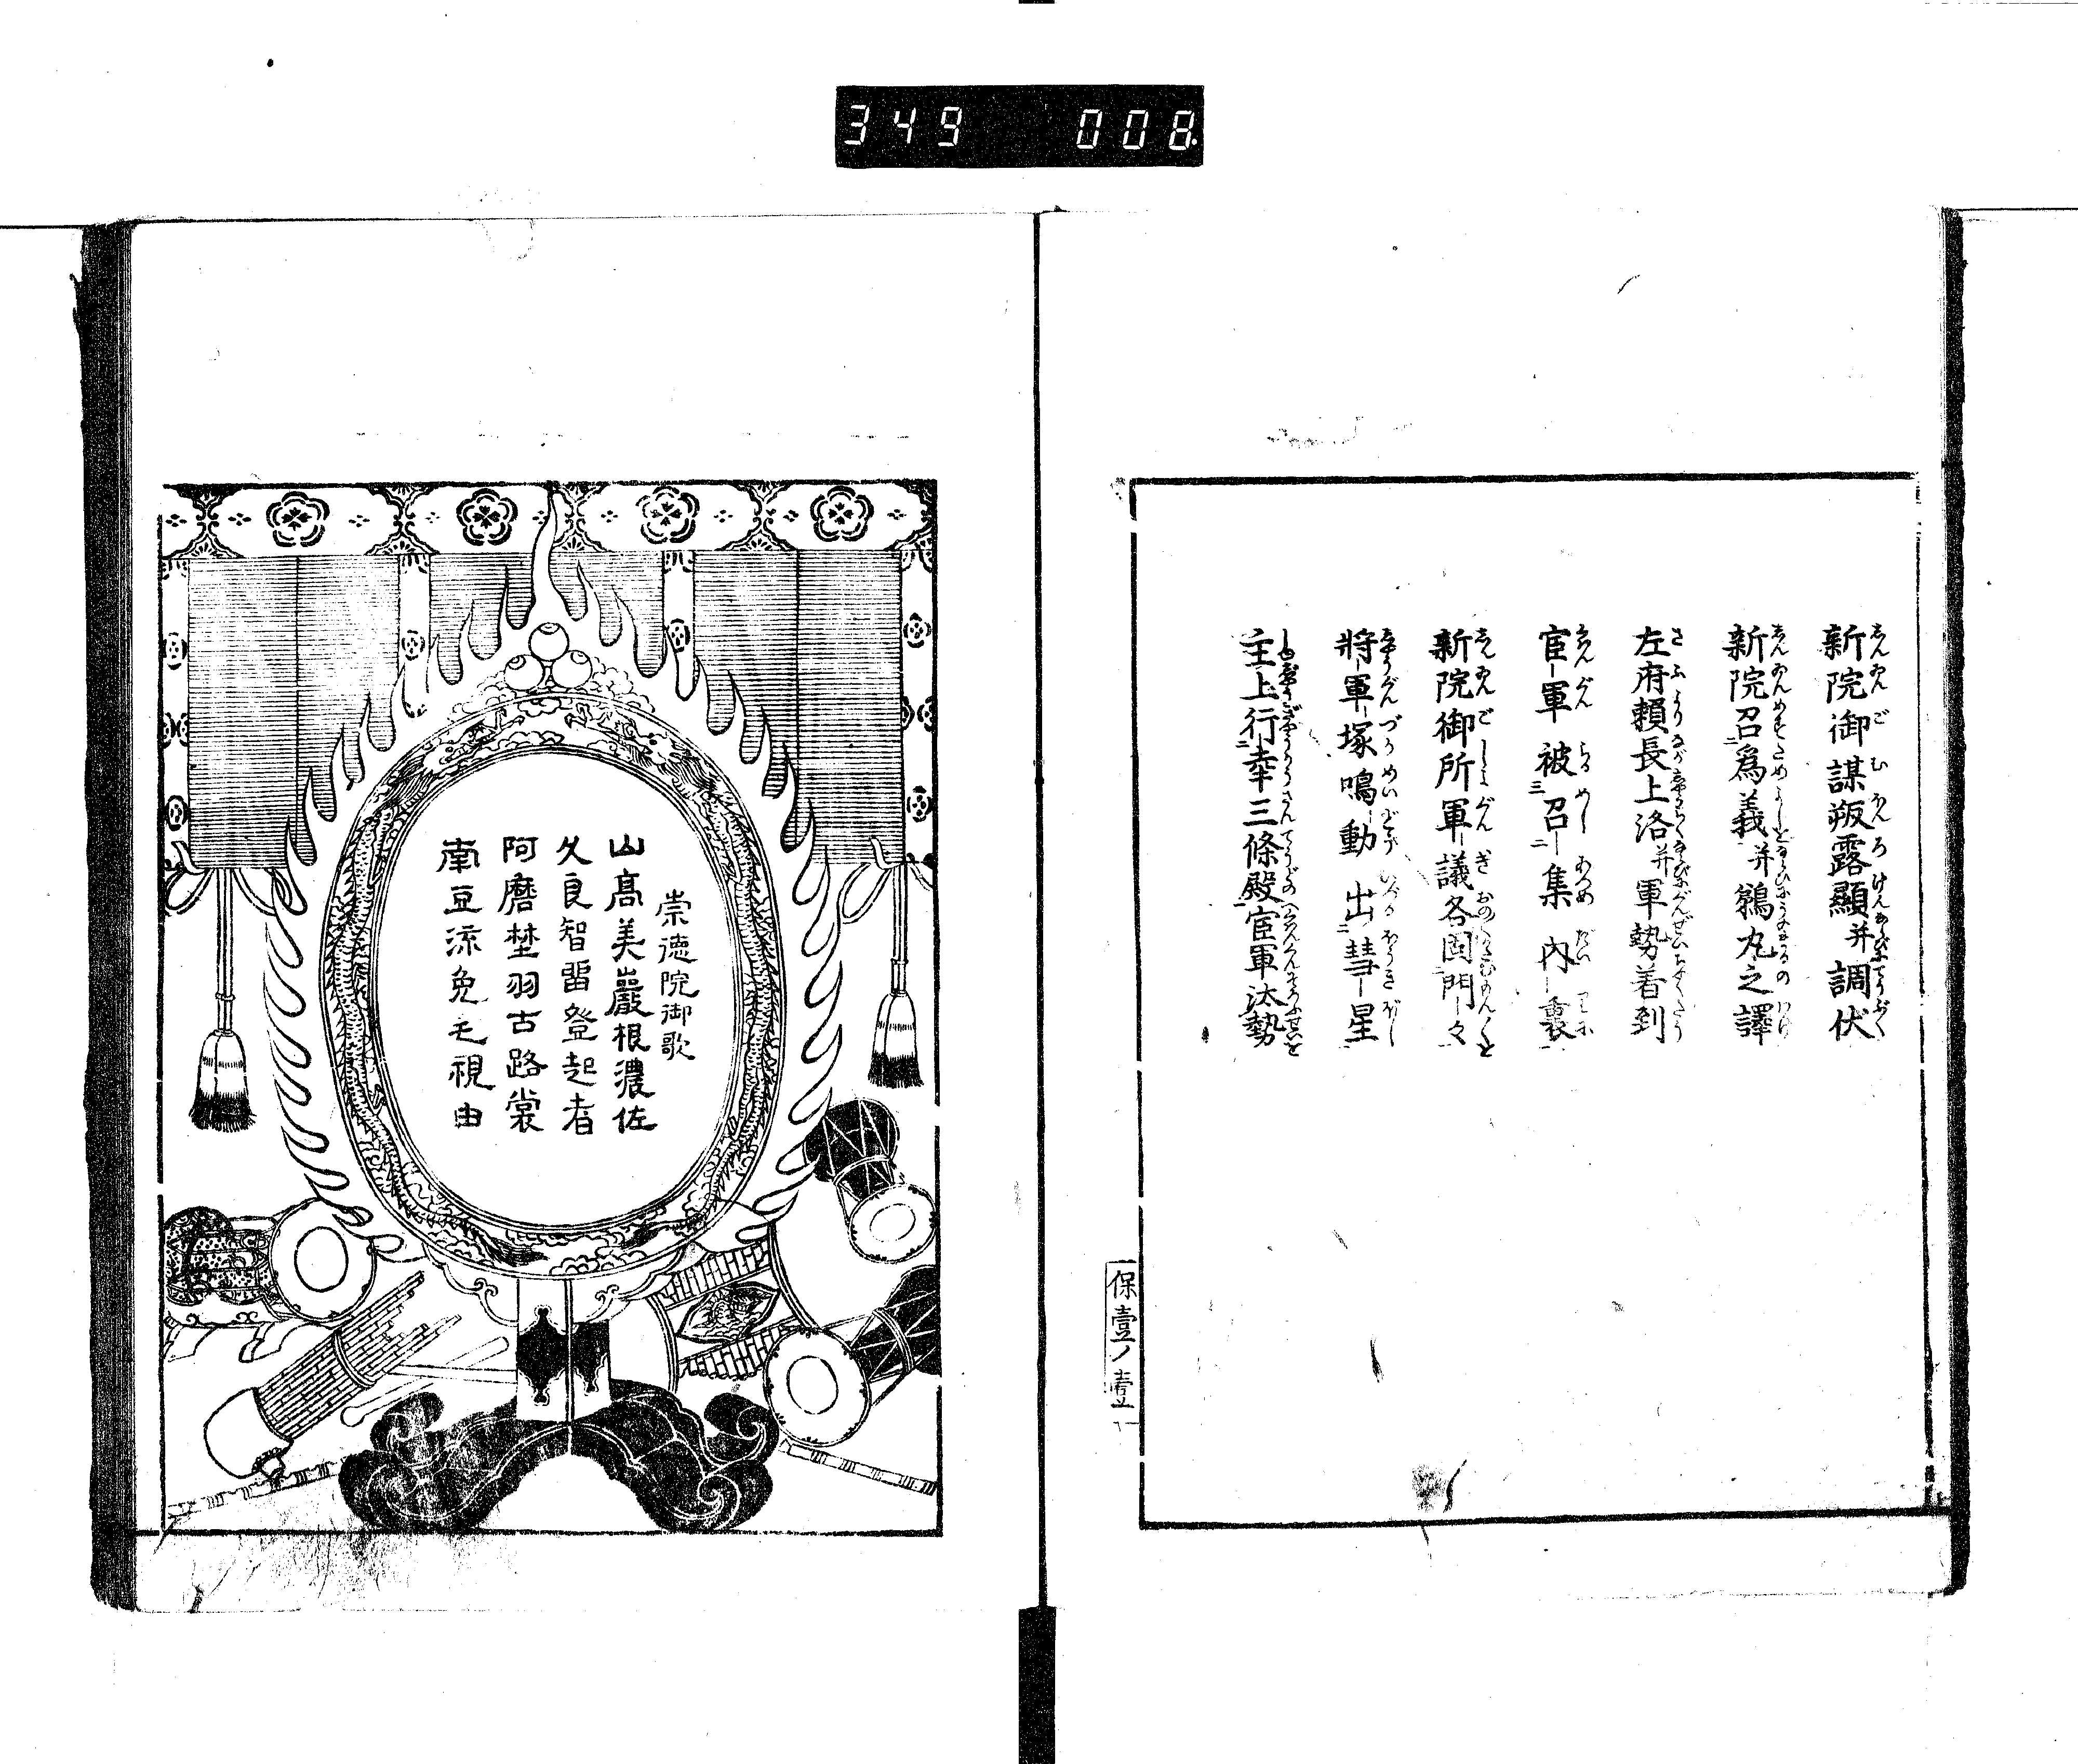 349 008
新院御謀叛露顯并調伏
新院召爲義并鵜丸之譯
左府頼長上洛并軍勢着到
官軍被召集内裏
新院御所軍議各固門々
將軍塚鳴動出彗星
主上行幸三條殿官軍汰勢
保壹ノ壹
崇徳院御歌
山高美巖根濃佐
久良智留登起者
阿麿埜羽古路裳
南豆流兔毛視由